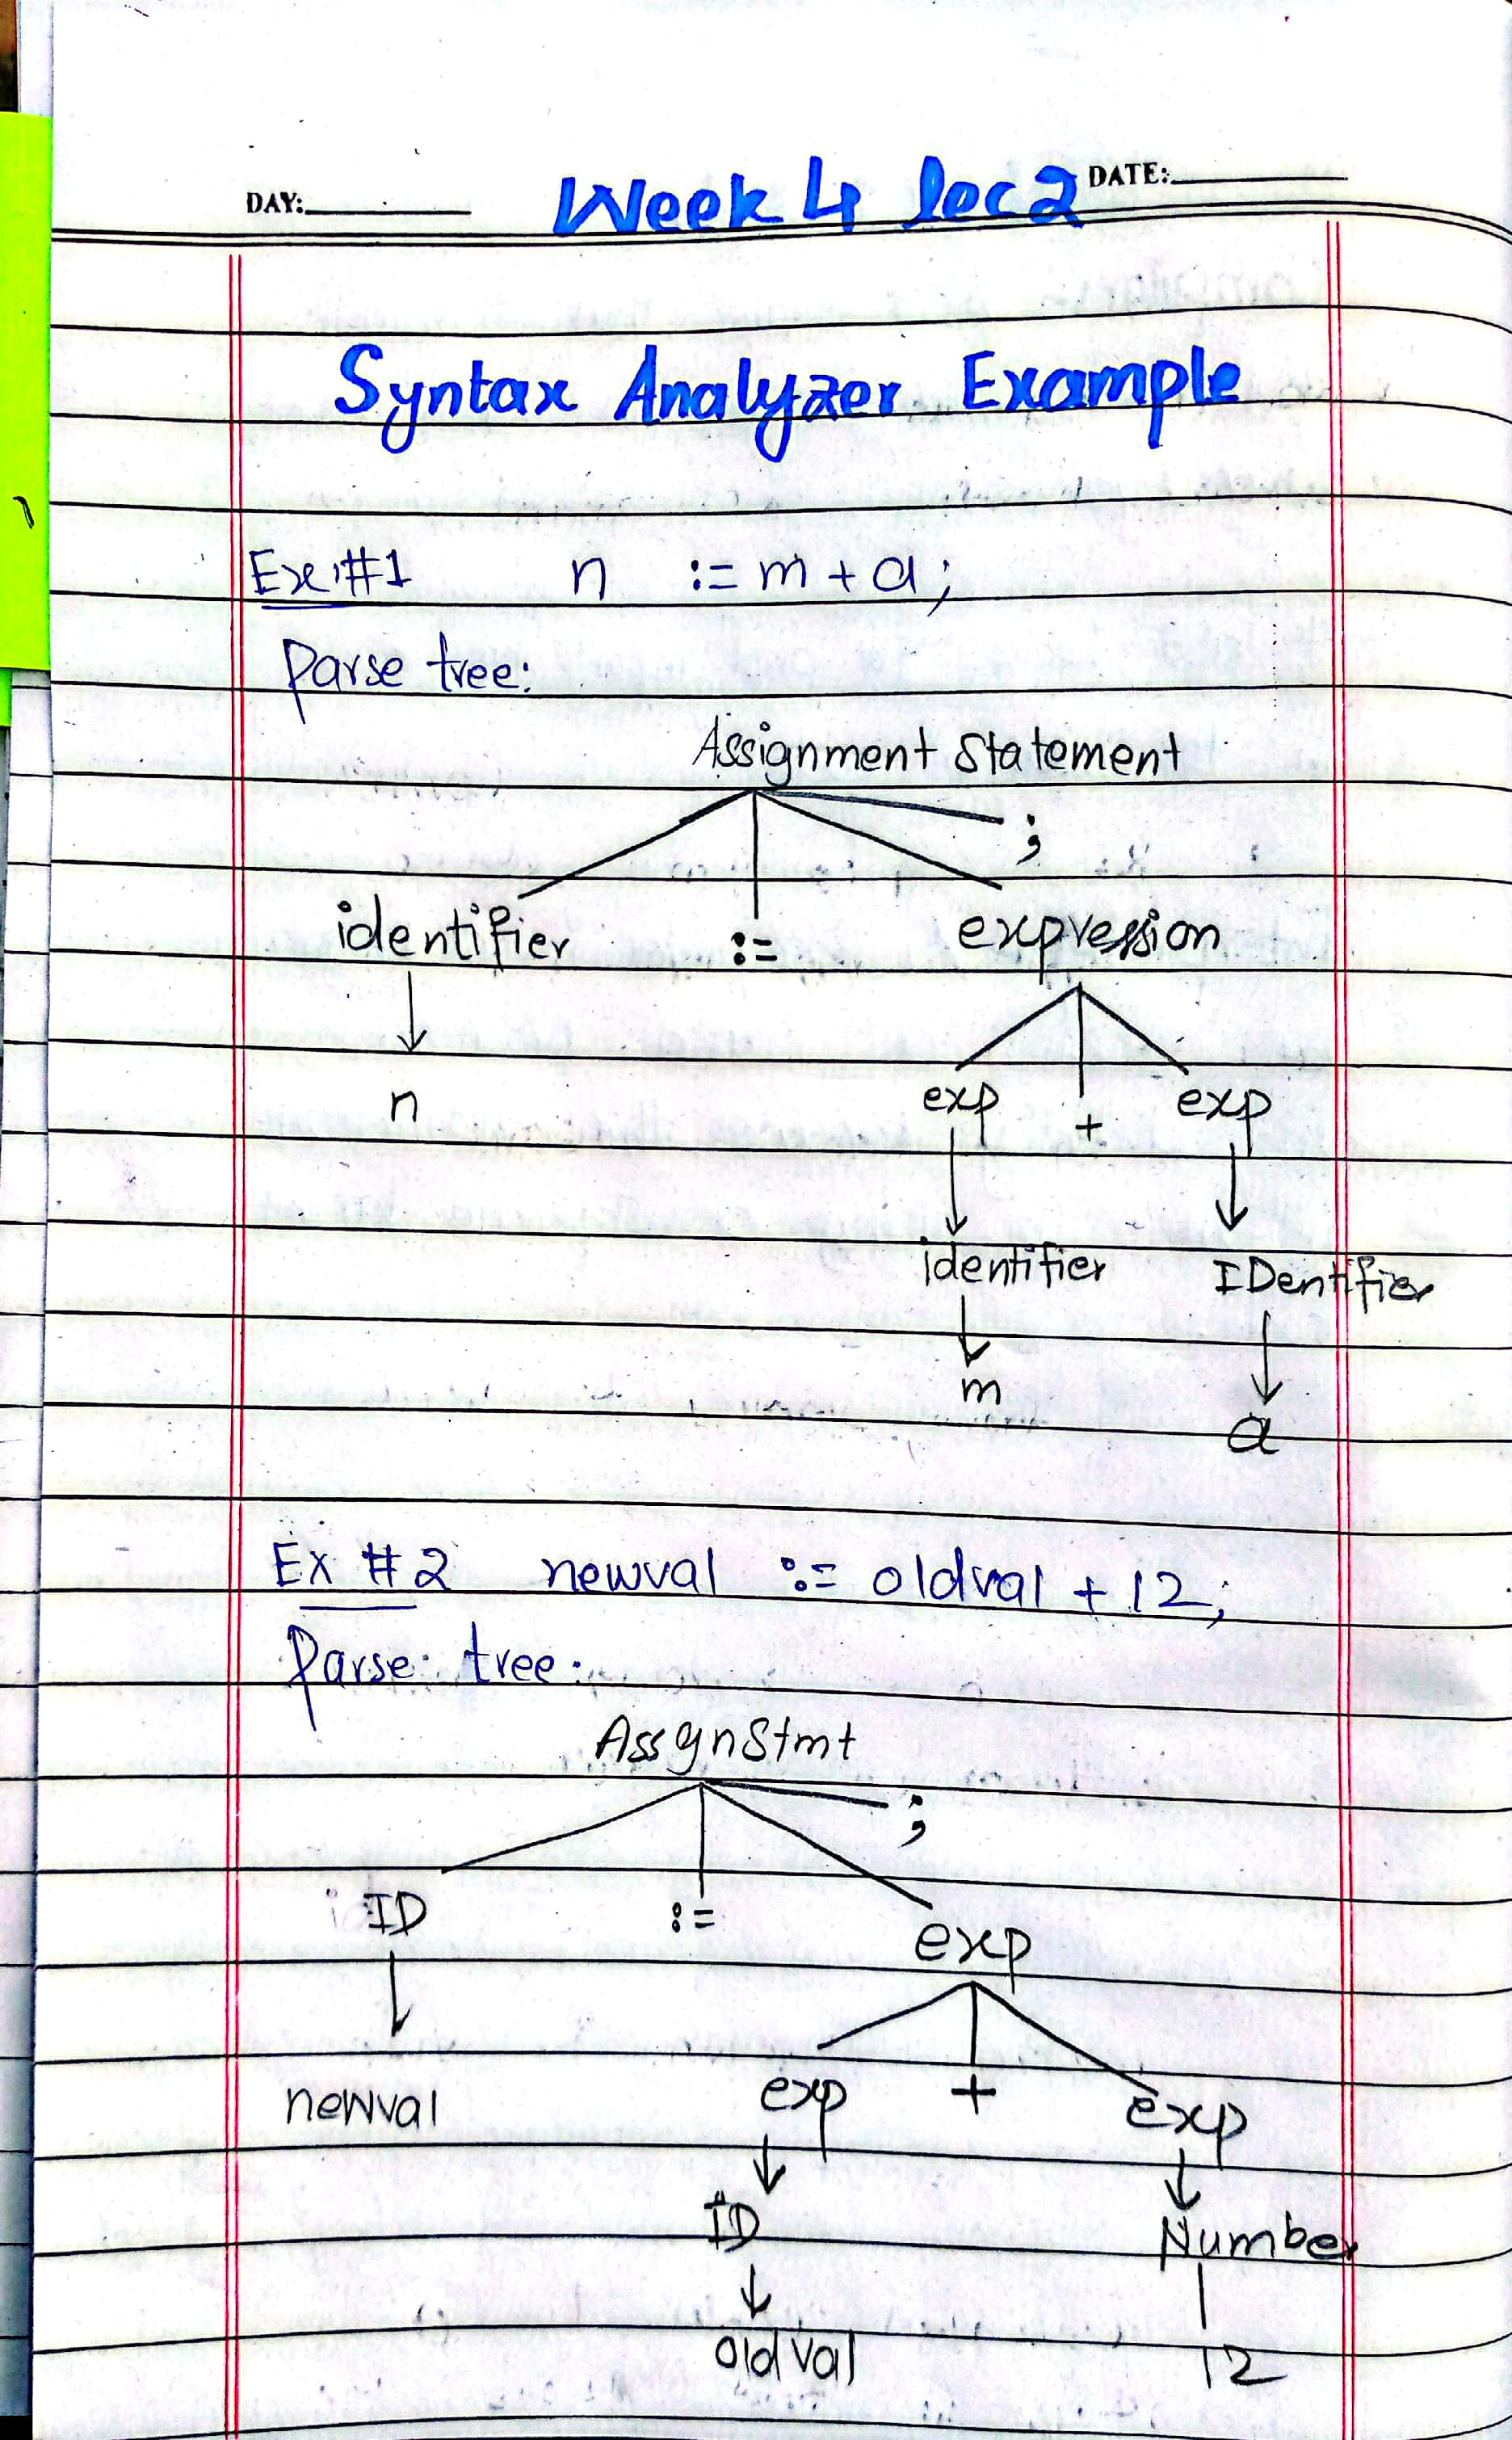 DAY: Week 4 lec 2 DATE:
Syntax Analyzer Example
Ex:#1 n := m + a;
Parse tree:
Assignment Statement
;
identifier := expression
n exp + exp
identifier IDentifier
m
a
Ex #2 newval := oldval + 12;
Parse tree:
AssgnStmt
;
ID := exp
newval exp + exp
ID Number
oldval 12